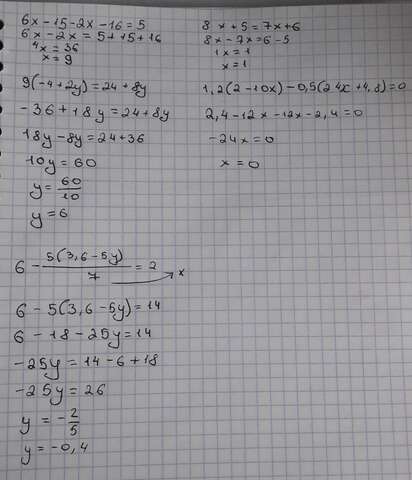 6x - 15 - 2x - 16 = 5
6x - 2x = 5 + 15 + 16
4x = 36
x = 9
8x + 5 = 7x + 6
8x - 7x = 6 - 5
1x = 1
x = 1
9(-4 + 2y) = 24 + 8y
-36 + 18y = 24 + 8y
18y - 8y = 24 + 36
10y = 60
y = 60/10
y = 6
1,2(2 - 10x) - 0,5(24x + 4,8) = 0
2,4 - 12x - 12x - 2,4 = 0
-24x = 0
x = 0
6 - 5(3,6 - 5y)/7 = 2 x
6 - 5(3,6 - 5y) = 14
6 - 18 - 25y = 14
-25y = 14 - 6 + 18
-25y = 26
y = -2/5
y = -0,4